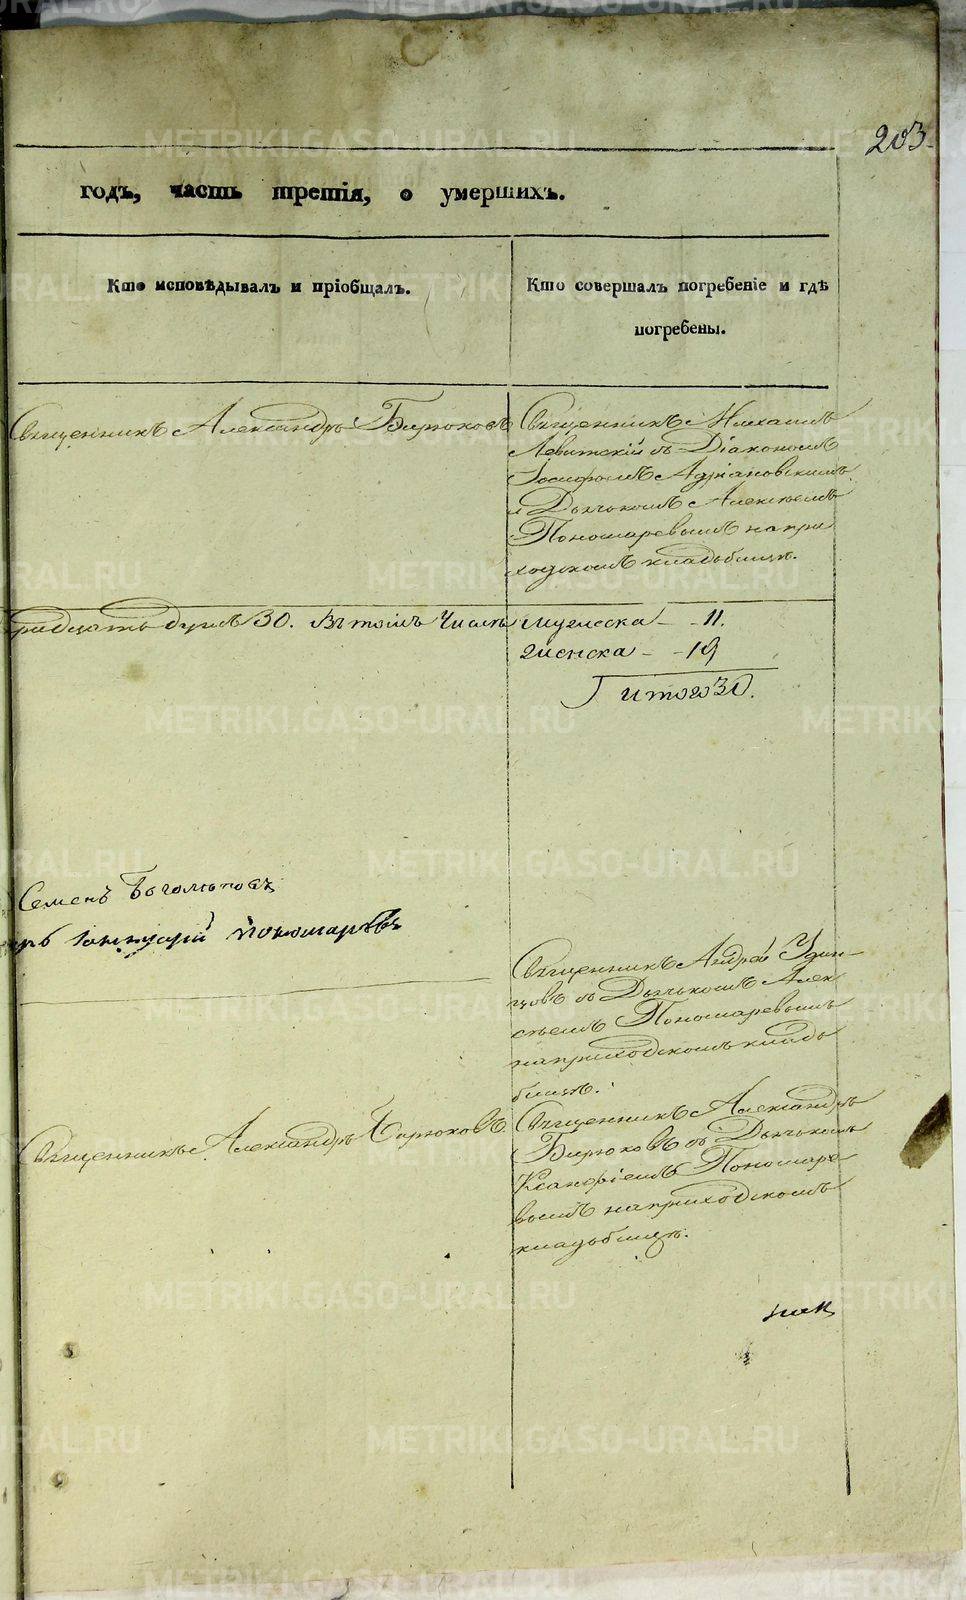 203.
годъ, часть третія, о умершихъ.
Кто исповѣдывалъ и пріобщалъ.
Кто совершалъ погребеніе и гдѣ
погребены.
Священникъ Александръ Бирюковъ
Священникъ Михаилъ
Левитскій съ Діакономъ
Іосифомъ Адріановскимъ
и Дьячкомъ Алексѣемъ
Пономаревымъ на при
ходскомъ кладбищѣ.
тридцать душъ 30. Въ томъ числѣ мужеска - 11.
женска - 19
Итого 30.
Семенъ Боголѣповъ
Пономаревъ
Священникъ Андрей Удин-
цовъ съ Дьячкомъ Алек
сѣемъ Пономаревымъ
на приходскомъ кладъ
бищѣ.
Священникъ Александръ Бирюковъ
Священникъ Александръ
Бирюковъ съ Дьячкомъ
Ксанфіемъ Пономаре
вымъ на приходскомъ
кладъбищѣ.
METRIKI.GASO-URAL.RU